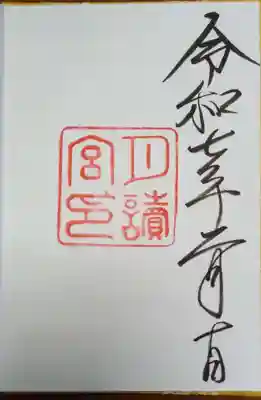 令和七年二月十一日
月讀
宮印